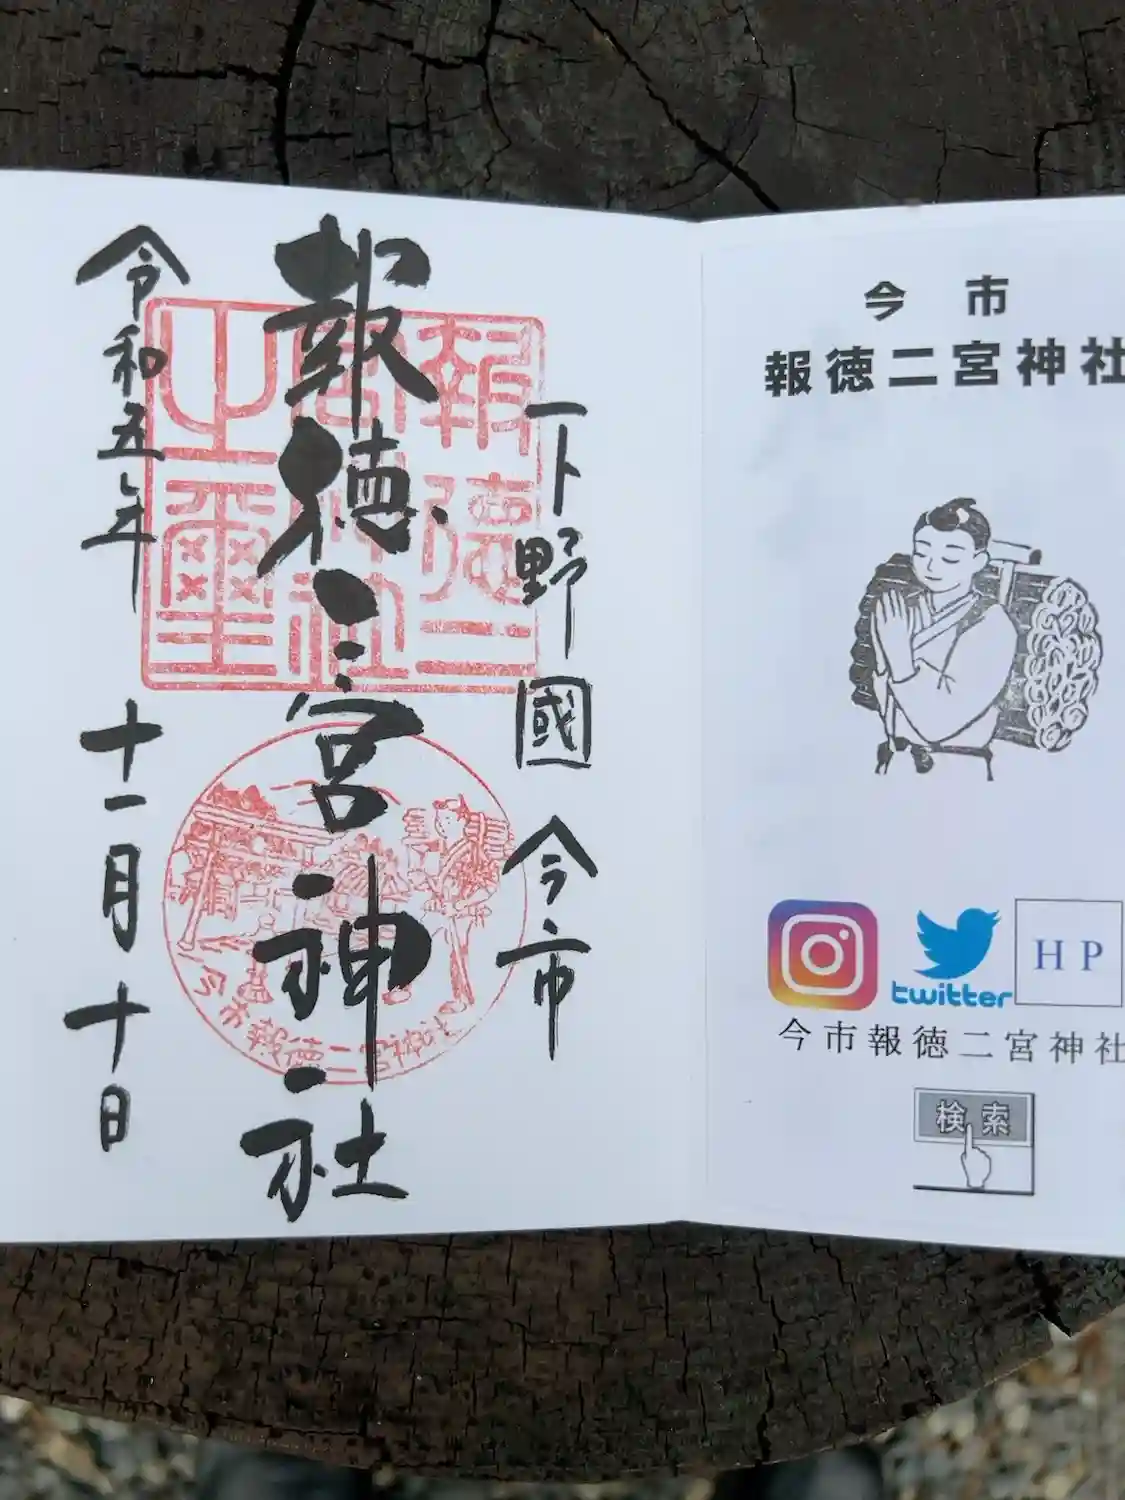 下野國 今市
報徳二宮神社
令和五年 十一月 十日
報徳二
宮神社
之璽
今市報徳二宮神社
今市
報徳二宮神社
twitter
HP
今市報徳二宮神社
検索